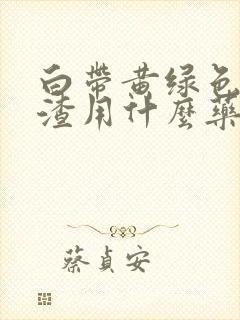 白帶黄绿色
渣用什麼藥
蔡貞安